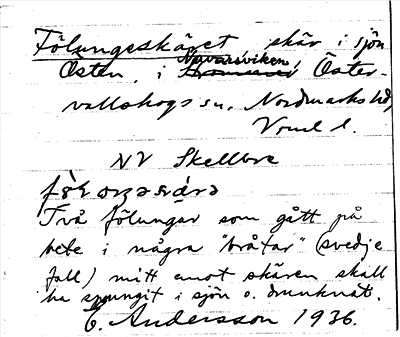 Fölungeskäret skär i sjön
Östen, i Navarsviken, Öster-
vallskogs sn. Nordmarks hd,
Vrml l.
NV Skellbre
Två fölungar som gått på
bete i några "bråtar" (svedje
fall) mitt emot skären skall
ha sprungit i sjön o. drunknat.
E. Andersson 1936.